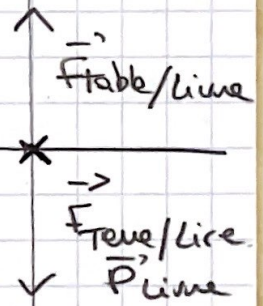 F table/Livre
F Terre/Livre
P Livre